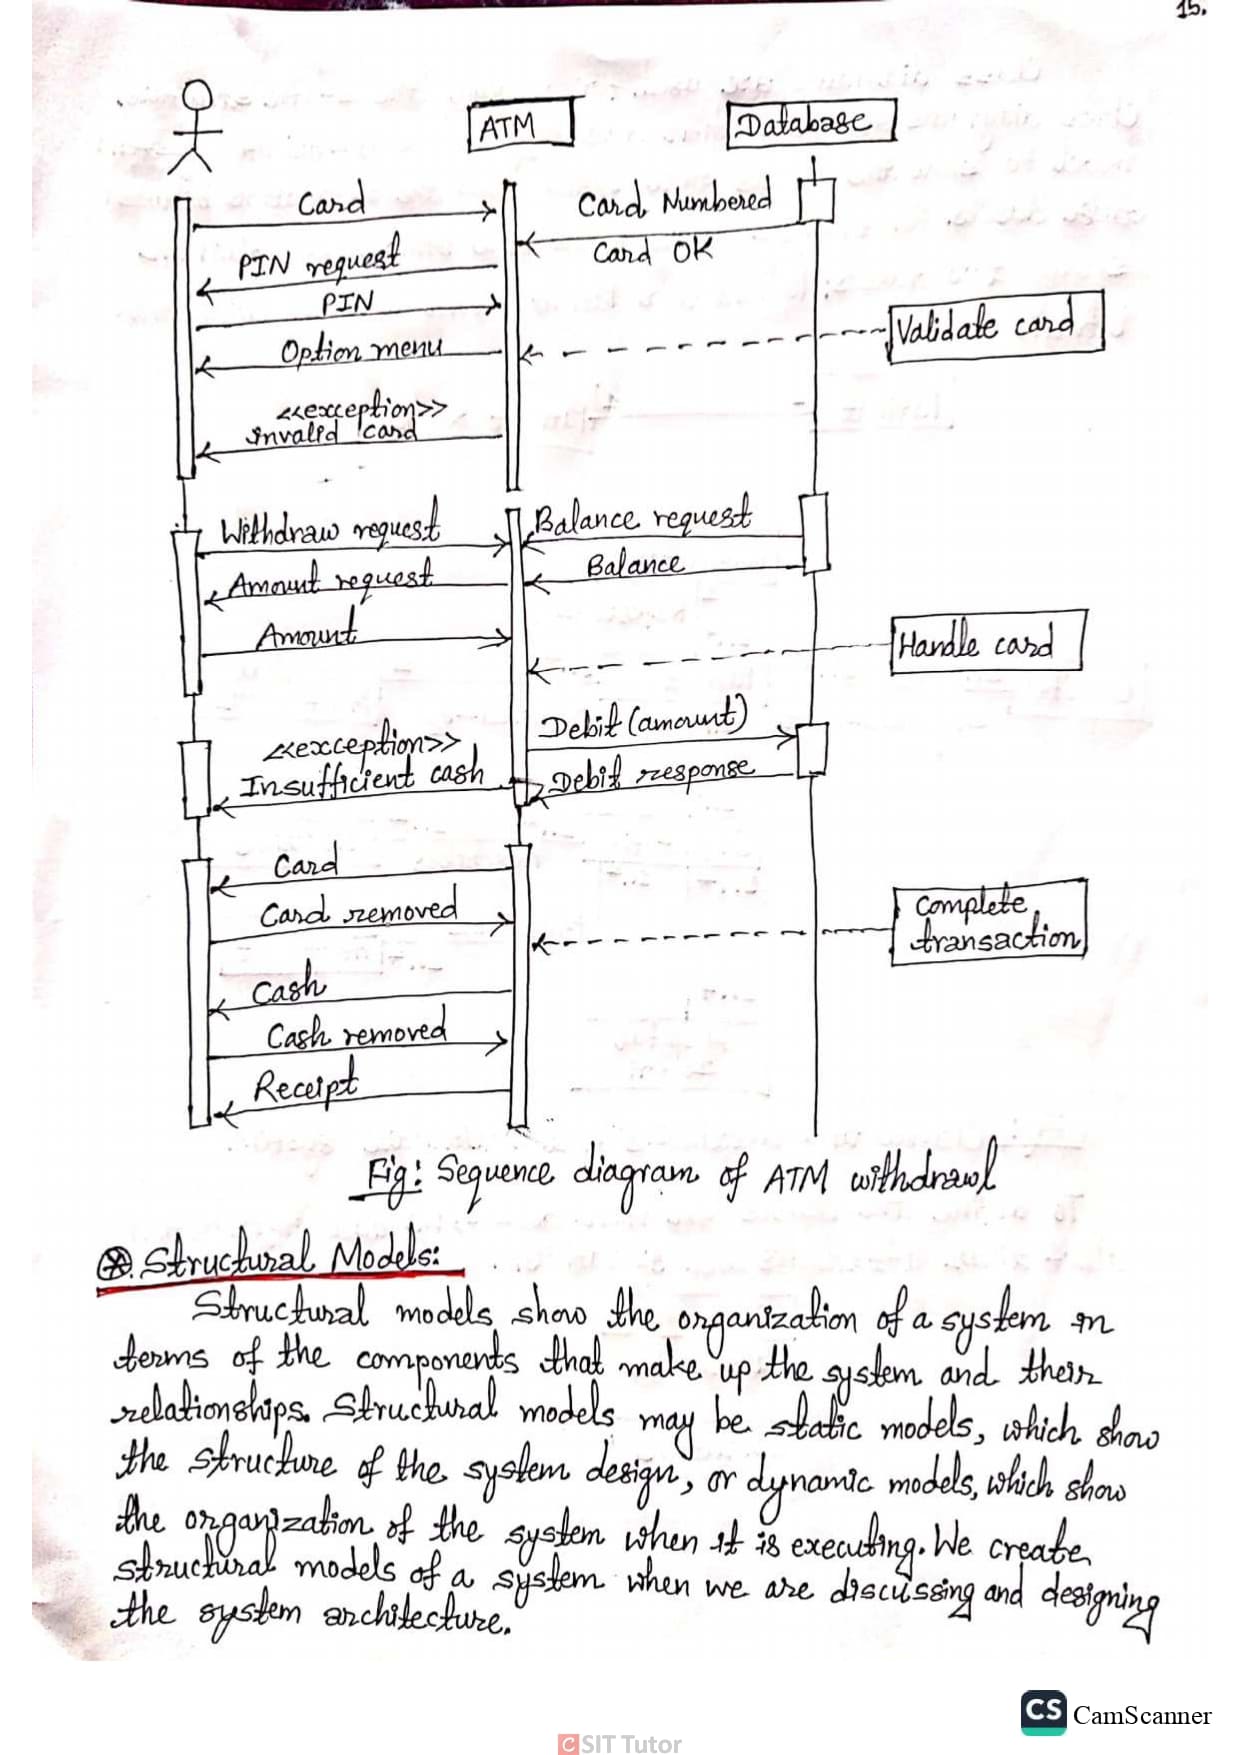 15.
ATM
Database
Card
Card Numbered
Card OK
PIN request
PIN
Validate card
Option menu
<<exception>>
invalid card
Withdraw request
Balance request
Balance
Amount request
Amount
Handle card
Debit (amount)
<<exception>>
Insufficient cash
Debit response
Card
Card removed
Complete
transaction
Cash
Cash removed
Receipt
Fig: Sequence diagram of ATM withdrawl
Structural Models:
Structural models show the organization of a system in
terms of the components that make up the system and their
relationships. Structural models may be static models, which show
the structure of the system design, or dynamic models, which show
the organization of the system when it is executing. We create
structural models of a system when we are discussing and designing
the system architecture.
CS CamScanner
CSIT Tutor